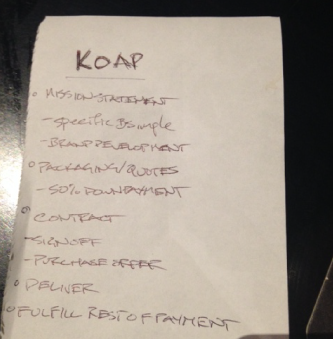 KOAP
MISSION STATEMENT
- Specific & simple
- BRAND DEVELOPMENT
PACKAGING/QUOTES
- 50% DOWNPAYMENT
CONTRACT
- SIGN OFF
- PURCHASE OFFER
DELIVER
FULFILL REST OF PAYMENT